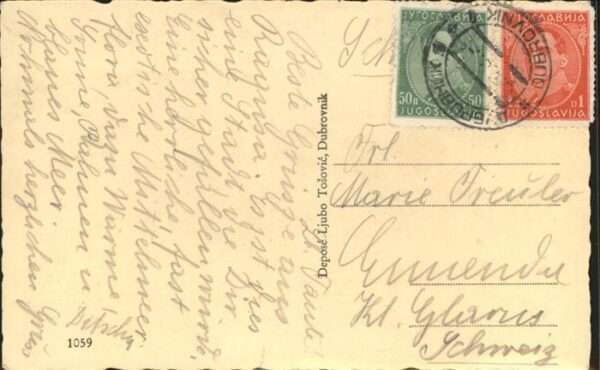 Lb. Tante!
Beste Grüsse aus
Ragusa. Es ist dies
eine Stadt die Dir
sicher gefallen würde,
Eine herrliche fast
exotische Mittelmeer-
flora, dazu Wärme,
Sonne, Palmen u
blaues Meer.
Nochmals herzlichen Gruss
1059
Deposé Ljubo Tošović, Dubrovnik
ЈУГОСЛАВИЈА
50 P
50
JUGOSLAVIJA
ЈУГОСЛАВИЈА
D 1
JUGOSLAVIJA
DUBROVNIK
Frl
Marie Treuler
Ennenda
Kt. Glarus
Schweiz